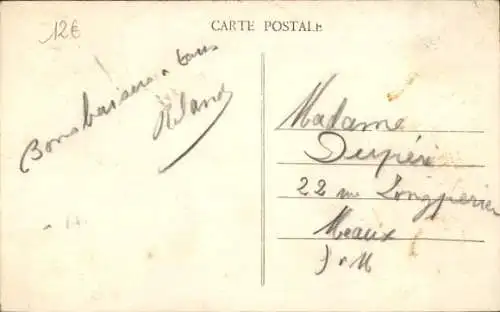 12€
CARTE POSTALE
Bons baisers a tous
Roland
Madame
Dupéré
22 rue Longperier
Meaux
S M